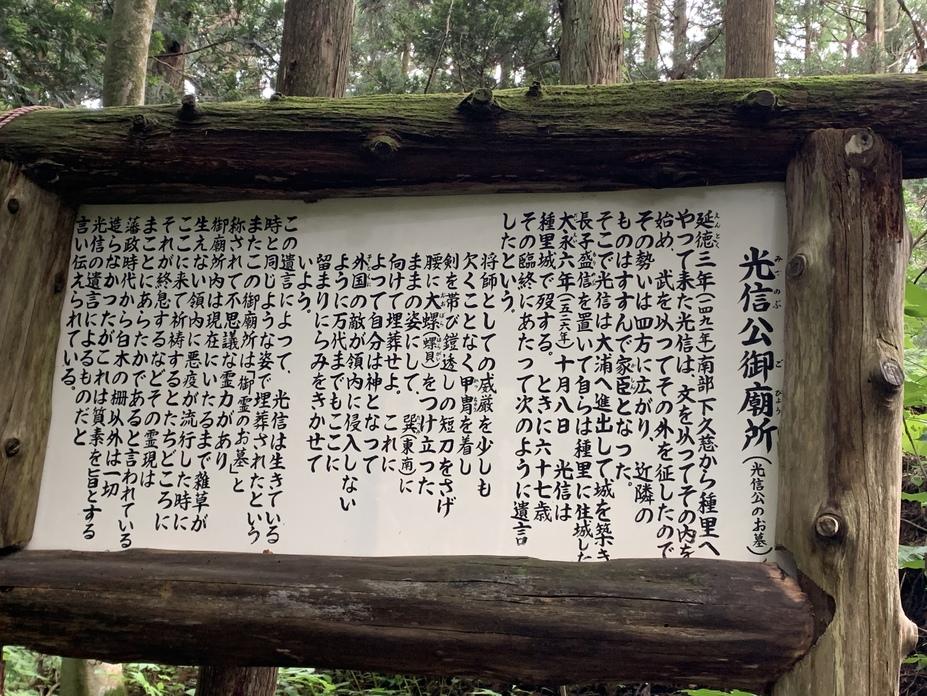 光信公御廟所（光信公のお墓）
延徳三年（一四九一年）南部下久慈から種里へ
やって来た光信は、文を以ってその内を
始め、武を以ってその外を征したので
その勢いは四方に広がり、近隣の
ものはすすんで家臣となった。
そこで光信は大浦へ進出して城を築き
長子盛信を置いて自らは種里に住城した
大永六年（一五二六年）十月八日 光信は
種里城で歿する。ときに六十七歳
その臨終にあたって次のように遺言
したという。
将師としての威厳を少しも
欠くことなく甲冑を着し
剣を帯び鎧透しの短刀をさげ
腰に大螺（螺貝）をつけ立った
ままの姿にして、巽（東南）に
向けて埋葬せよ。これに
よって自分は神となって
外国の敵が領内に侵入しない
ように万代までもここに
留まりにらみをきかせて
いよう。
この遺言によって、光信は生きている
時と同じような姿で埋葬されたという
またこの御廟所は「御霊のお墓」と
称されて不思議な霊力があり
御廟所内は現在にいたるまで雑草が
生えない領内に悪疫が流行した時に
ここに来て祈祷するとたちどころに
それが終息するなどその霊現は
まことにあらたかであると言われている
藩政時代から白木の柵以外は一切
造らなかったがこれは質素を旨とする
光信の遺言によるものだと
言い伝えられている。